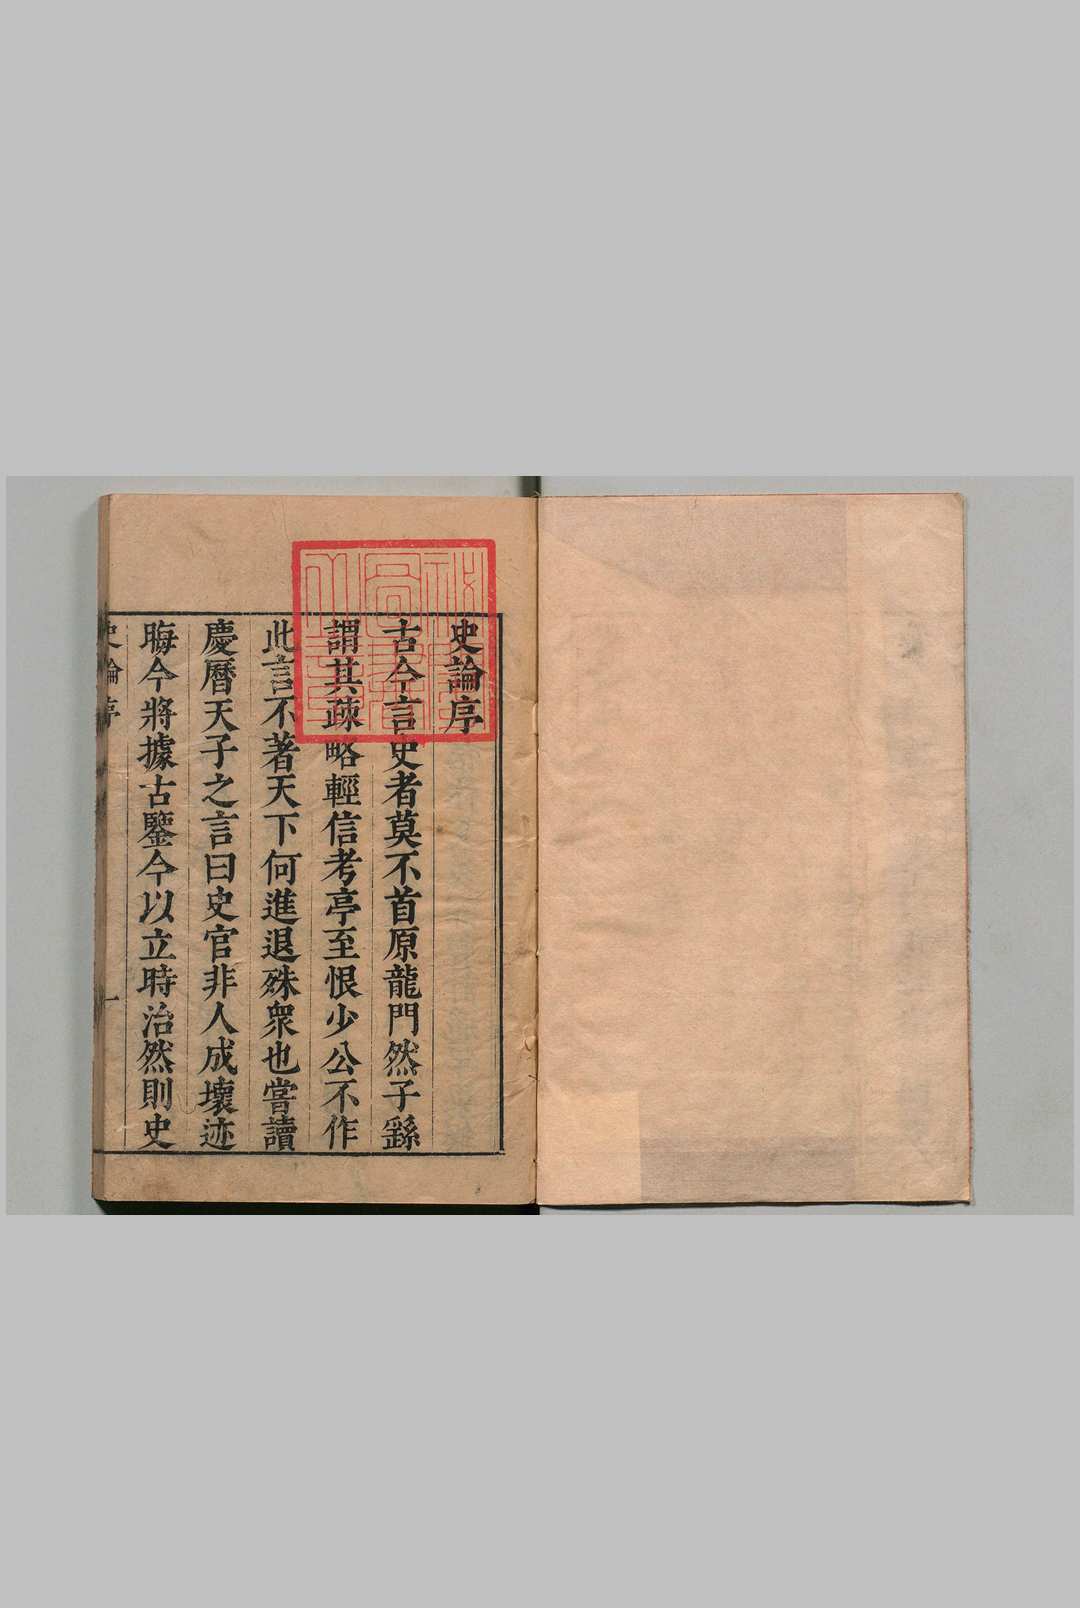 史論序
古今言史者莫不首原龍門然子繇
謂其疎略輕信考亭至恨少公不作
此言不著天下何進退殊衆也嘗讀
慶曆天子之言曰史官非人成壞迹
晦今將據古鑒今以立時治然則史
史論序
一